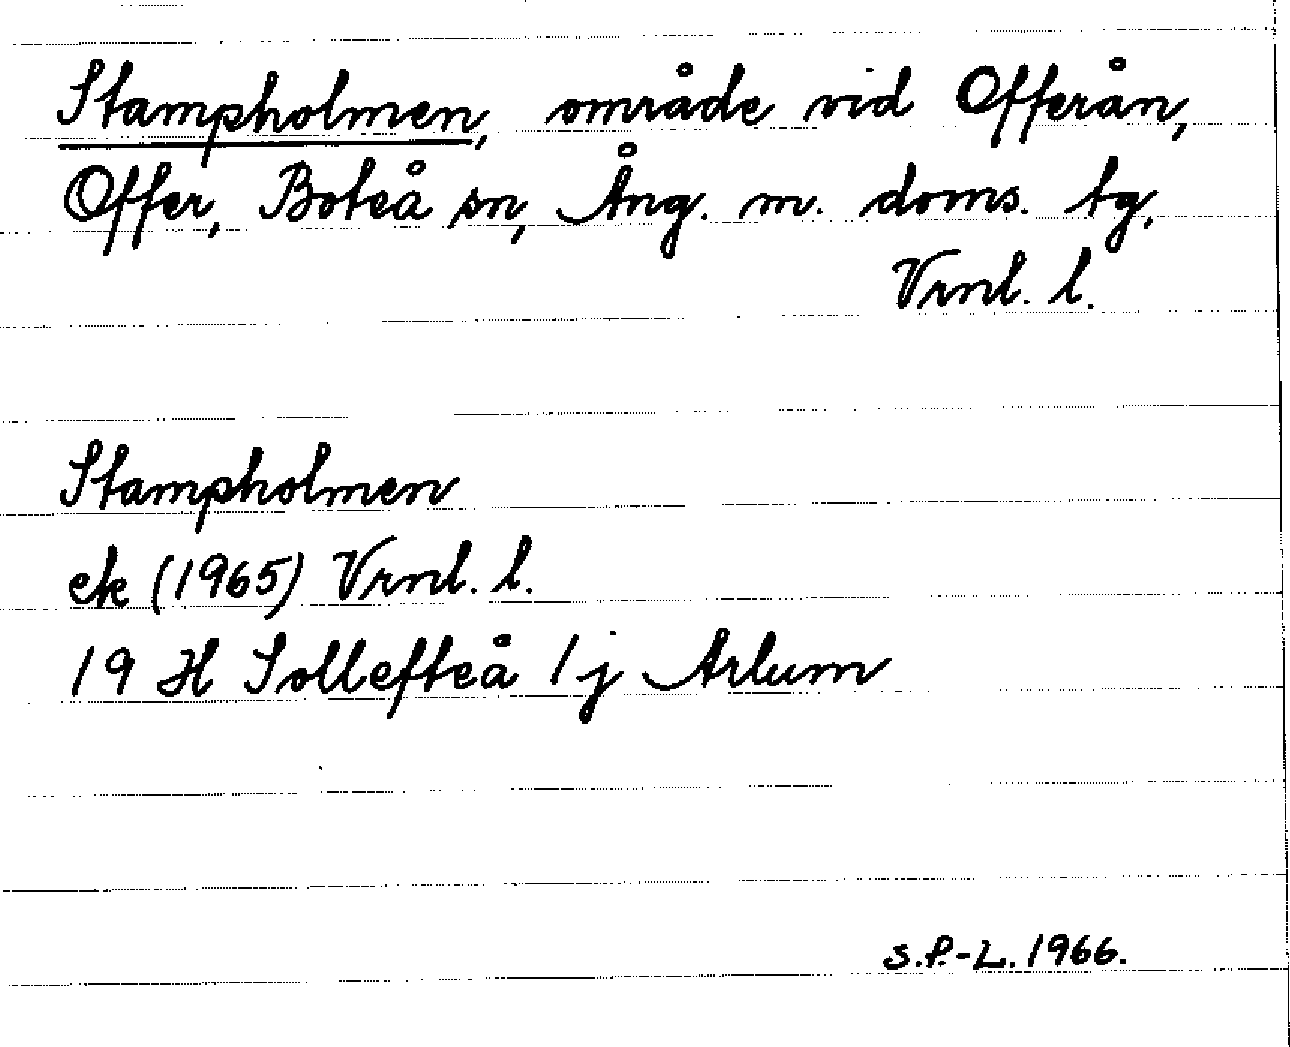 Stampholmen, område vid Offerån,
Offer, Boteå sn, Ång. m. doms. tg.
Vrnl. l.
Stampholmen
ek (1965) Vrnl. l.
19 H Sollefteå 1j Arlum
S.P.-L. 1966.